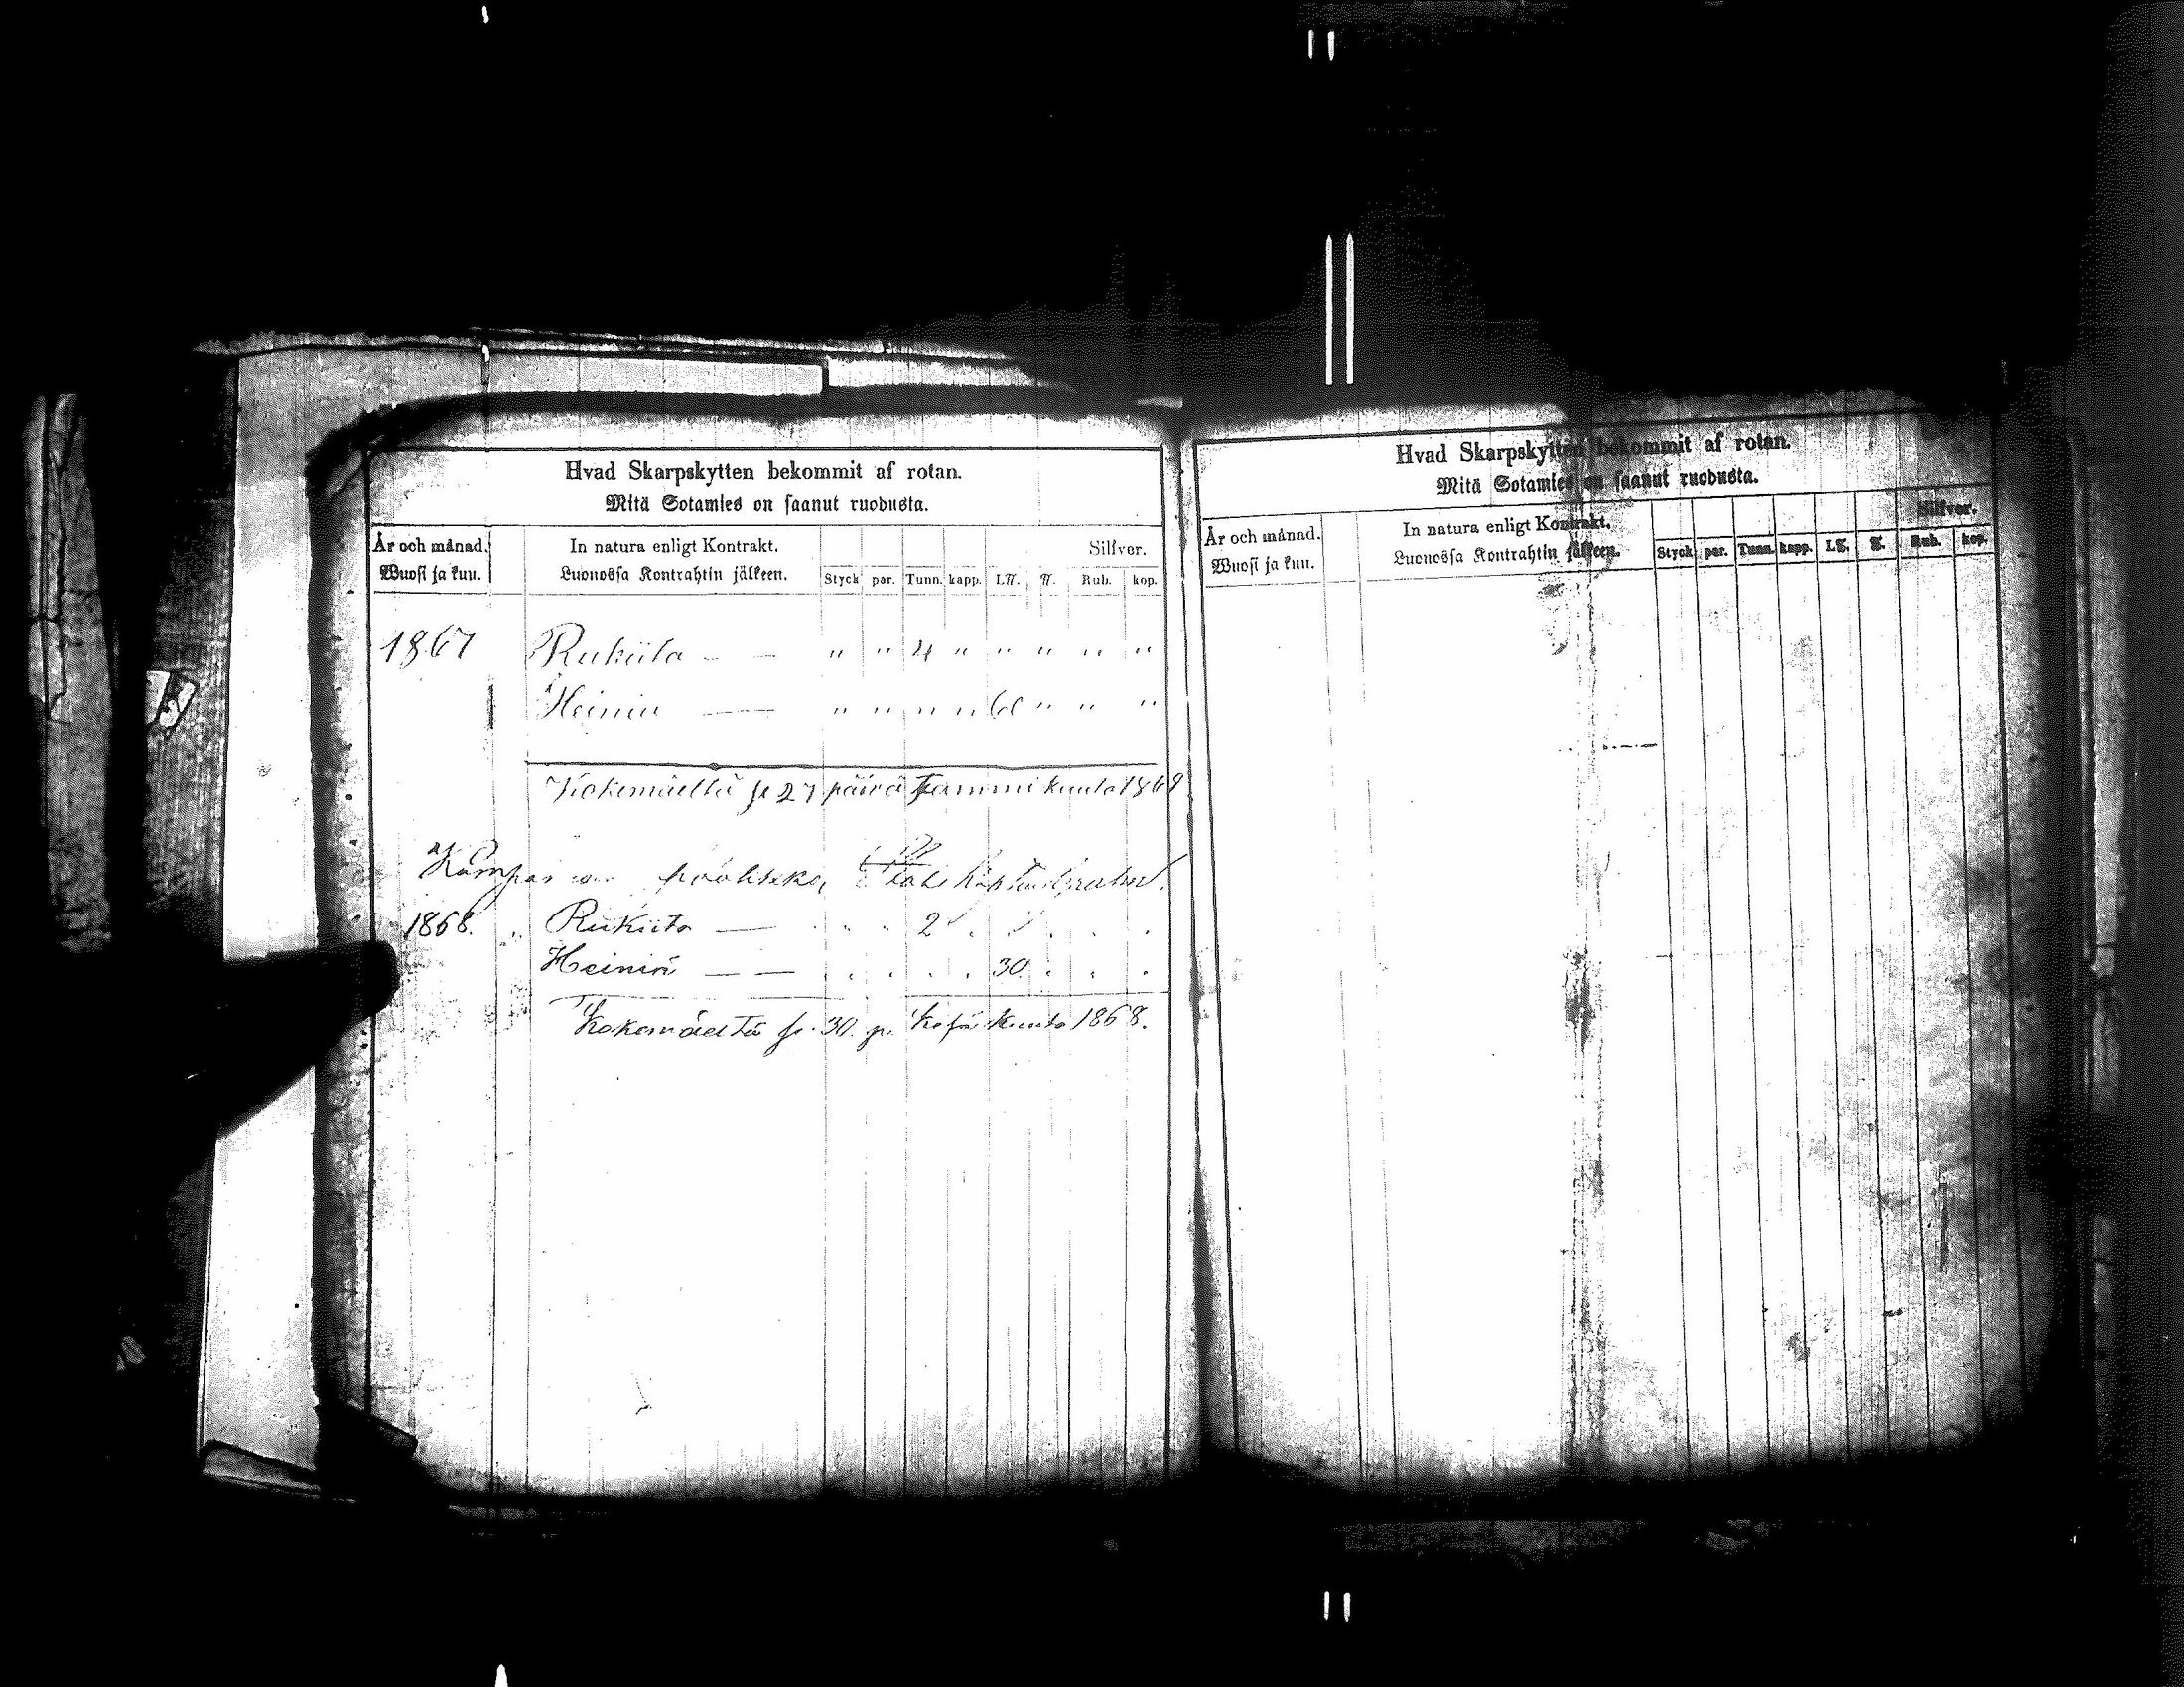 Hvad Skarpskytten bekommit af rotan.
Mitä Sotamies on saanut ruodusta.
År och månad.
Wuosi ja kuu.
In natura enligt Kontrakt.
Luonossa Kontrahtin jälkeen.
Silfver.
Styck par. Tunn. kapp. L℔. ℔. Rub. kop.
1867 Rukiita — — " " 4 " " " " "
Heiniä — " " " " 60 " " "
Kokemäeltä se 27 päivä Tammi kuuta 1868
1868. Rukiita — 2
Heiniä — — 30
Kokemäeltä se 30 p. Kesä kuuta 1868.
Hvad Skarpskytten bekommit af rotan.
Mitä Sotamies on saanut ruodusta.
År och månad.
Wuosi ja kuu.
In natura enligt Kontrakt.
Luonossa Kontrahtin jälkeen.
Silfver.
Styck par. Tunn. kapp. L℔. ℔. Rub. kop.